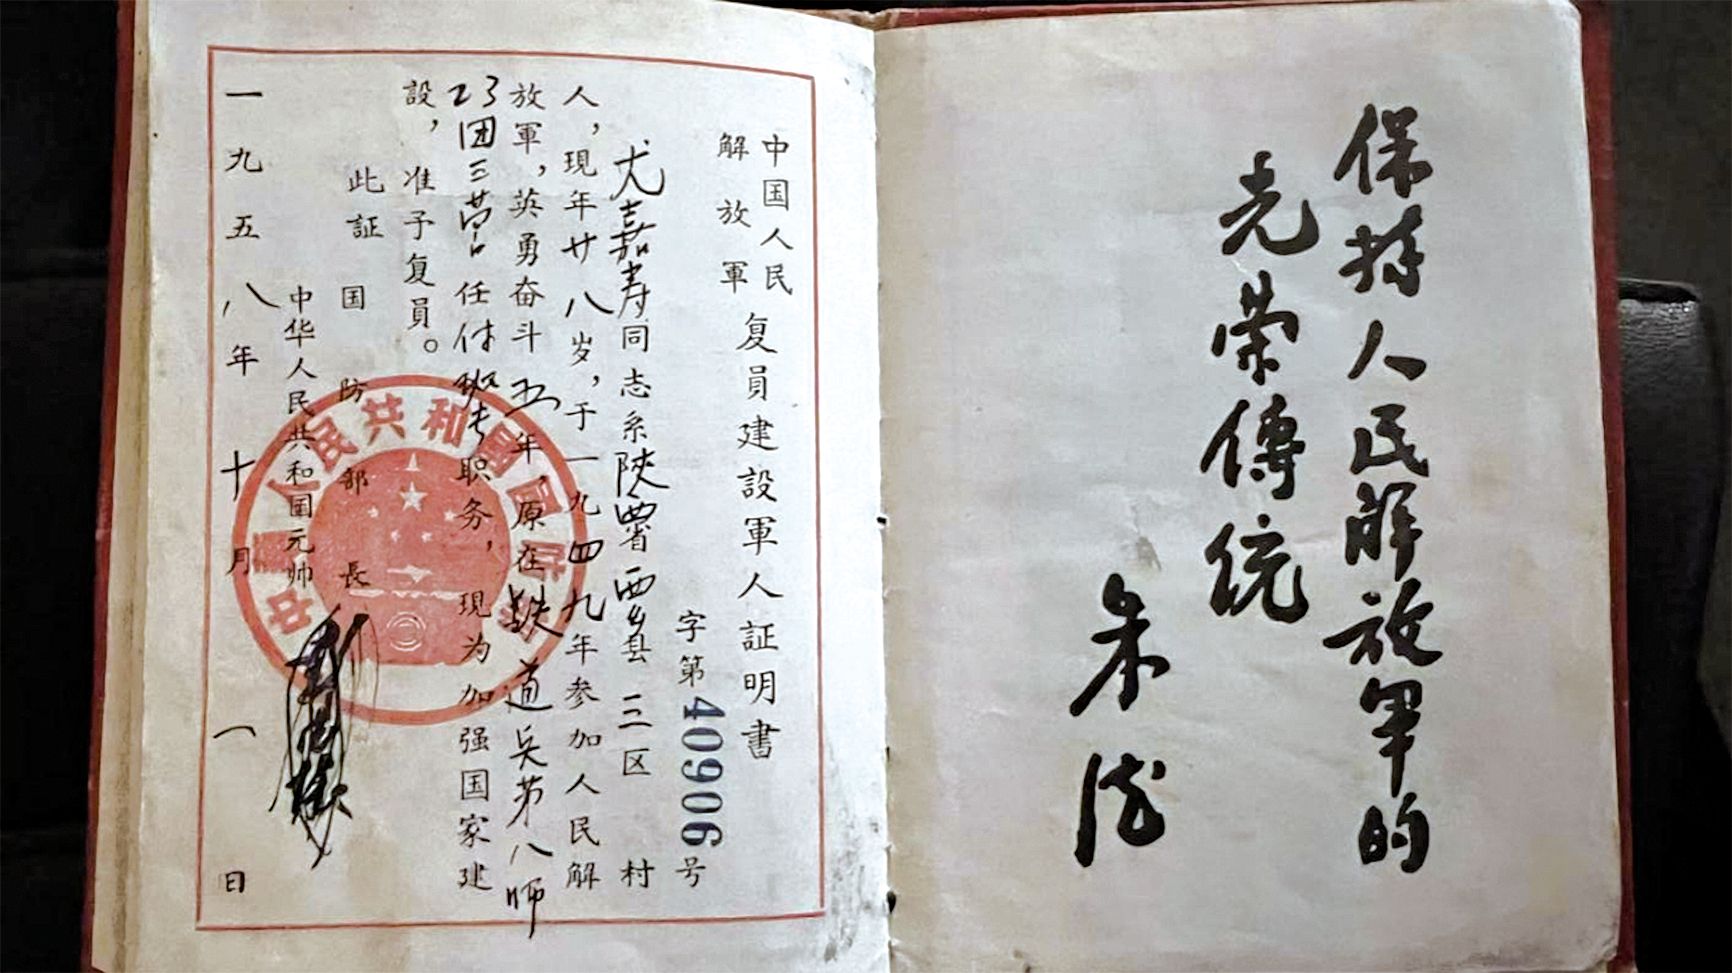 保持人民解放軍的
光荣傳統
朱德
中国人民
解放軍
复員建設軍人証明書
字第40906号
尤嘉寿同志系陕西省西乡县三区 村
人，現年廿八岁，于一九四九年参加人民解
放軍，英勇奋斗五年，原在铁道兵第八师
23团三营任付班长职务，現为加强国家建
設，准予复員。
此証
国防部長
中华人民共和国元帅
一九五八年十月一日
中華人民共和國國防部